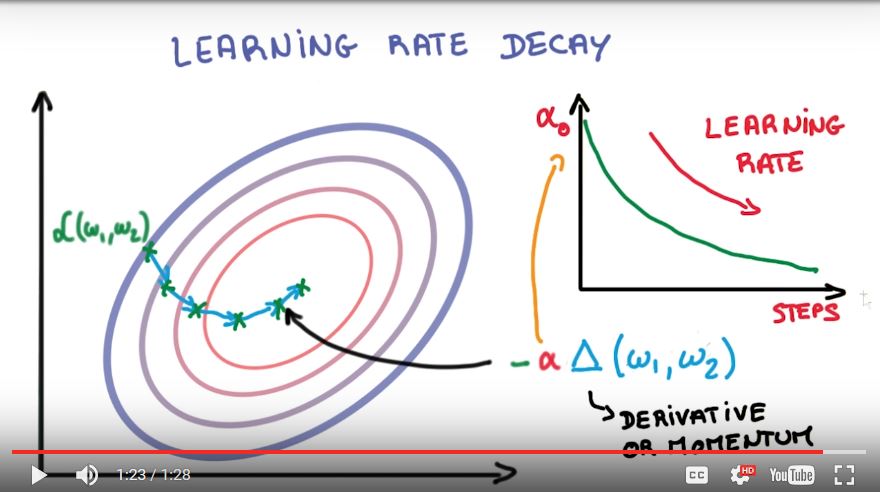 LEARNING RATE DECAY
α₀
LEARNING
RATE
ℒ(ω₁,ω₂)
STEPS
-α Δ(ω₁,ω₂)
DERIVATIVE
OR MOMENTUM
1:23 / 1:28
CC
HD
YouTube